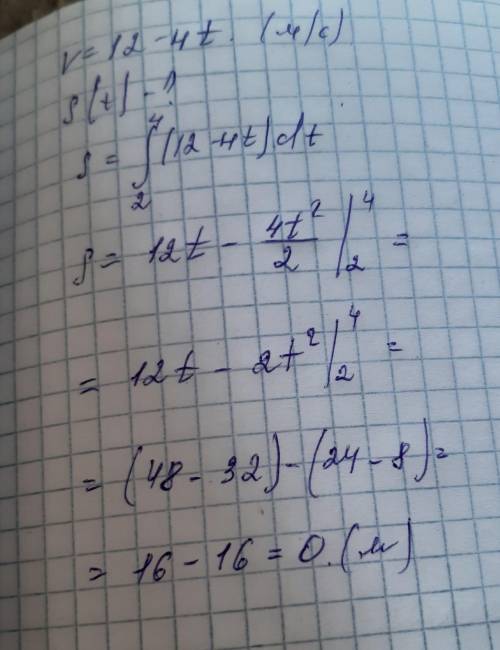 v = 12 - 4t. (м/с)
S(t) - ?
S = ∫₂⁴ (12 - 4t) dt
S = 12t - 4t²/2 |₂⁴ =
= 12t - 2t² |₂⁴ =
= (48 - 32) - (24 - 8) =
= 16 - 16 = 0. (м)